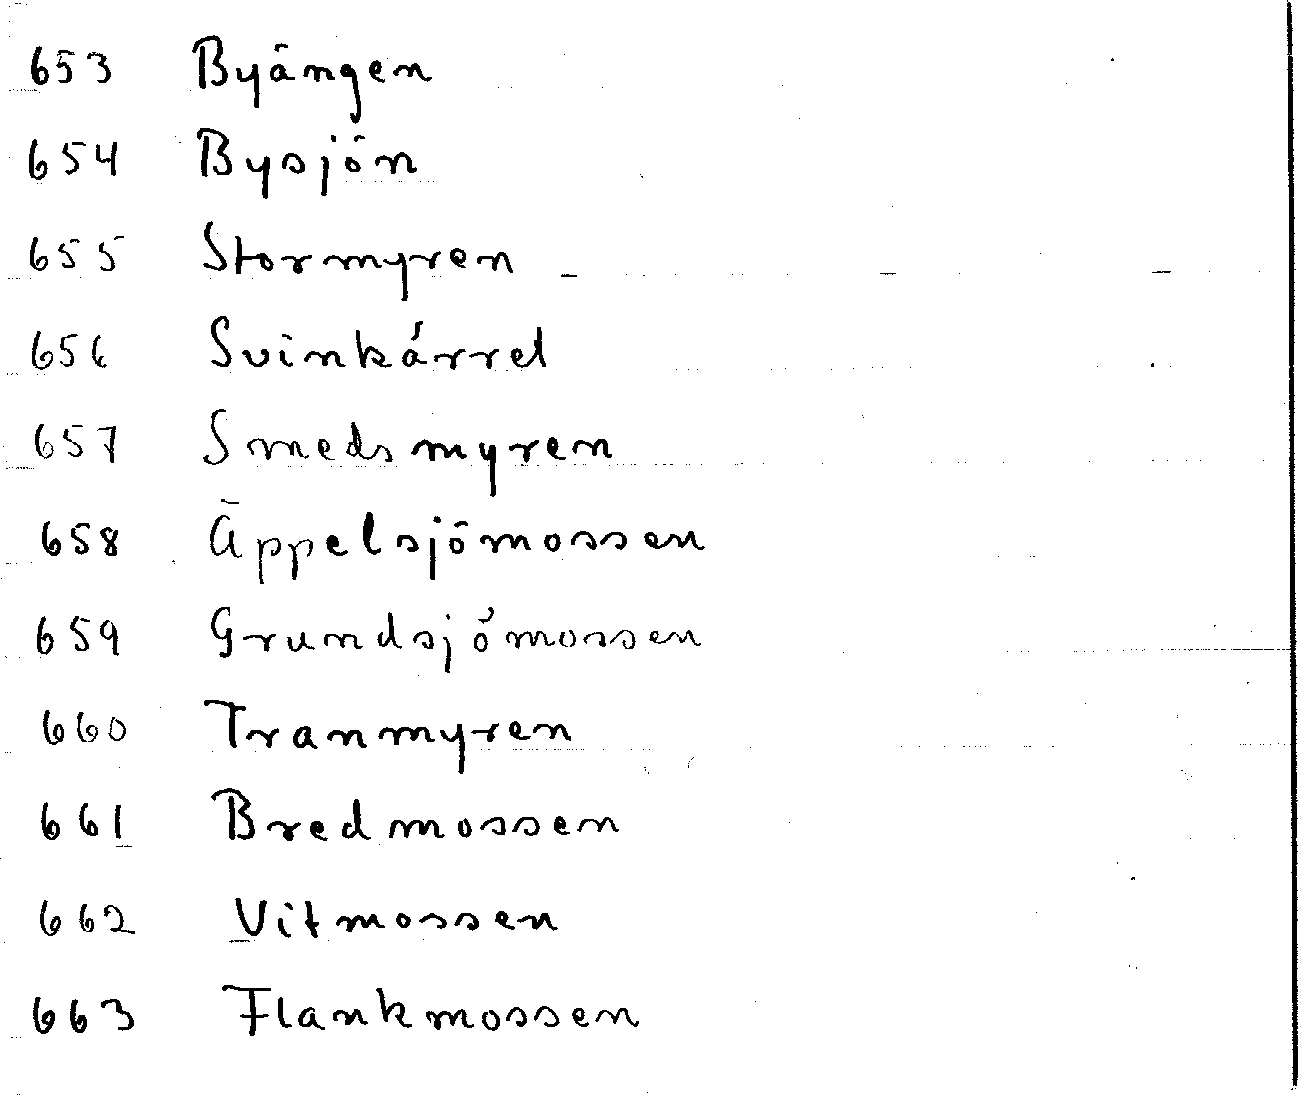 653 Byängen
654 Bysjön
655 Stormyren
656 Svinkärret
657 Smedsmyren
658 Äppelsjömossen
659 Grundsjömossen
660 Tranmyren
661 Bredmossen
662 Vitmossen
663 Flankmossen